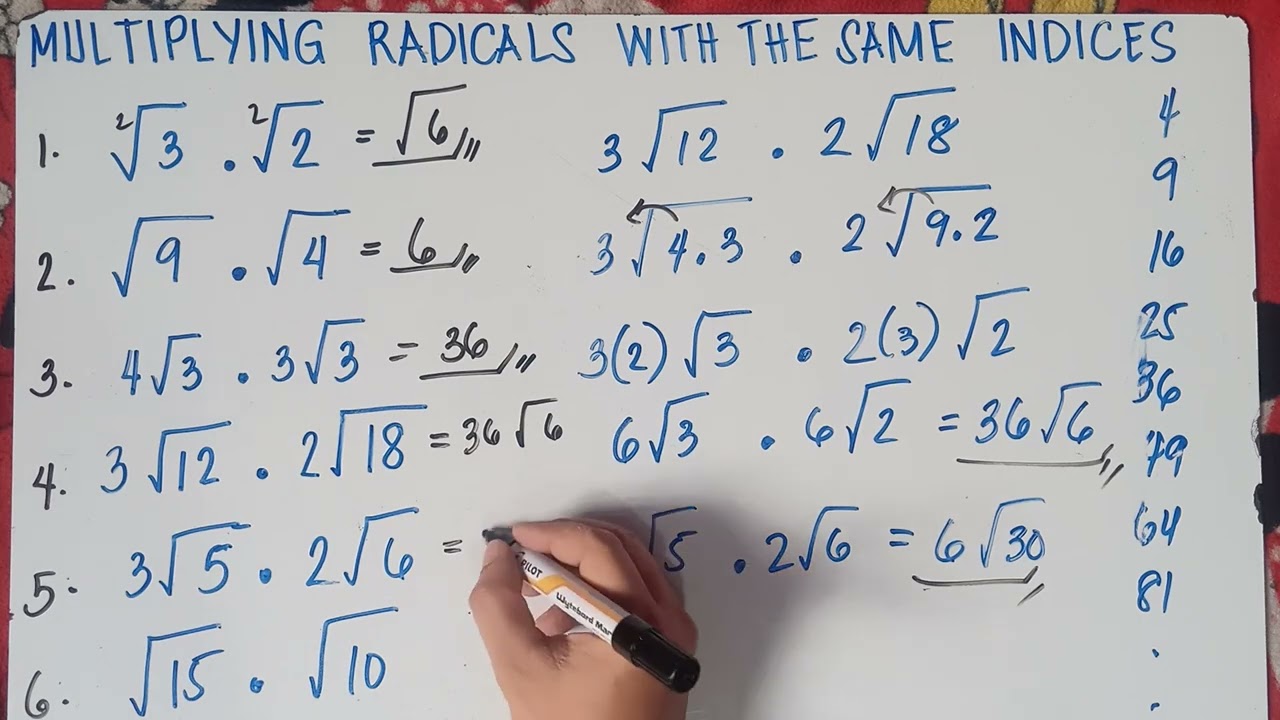 MULTIPLYING RADICALS WITH THE SAME INDICES
1. ²√3 . ²√2 = √6
2. √9 . √4 = 6
3. 4√3 . 3√3 = 36
4. 3√12 . 2√18 = 36√6
5. 3√5 . 2√6 =
6. √15 . √10
3√12 . 2√18
3√4.3 . 2√9.2
3(2)√3 . 2(3)√2
6√3 . 6√2 = 36√6
√5 . 2√6 = 6√30
4
9
16
25
36
79
64
81
.
.
PILOT
Wytebord Mar